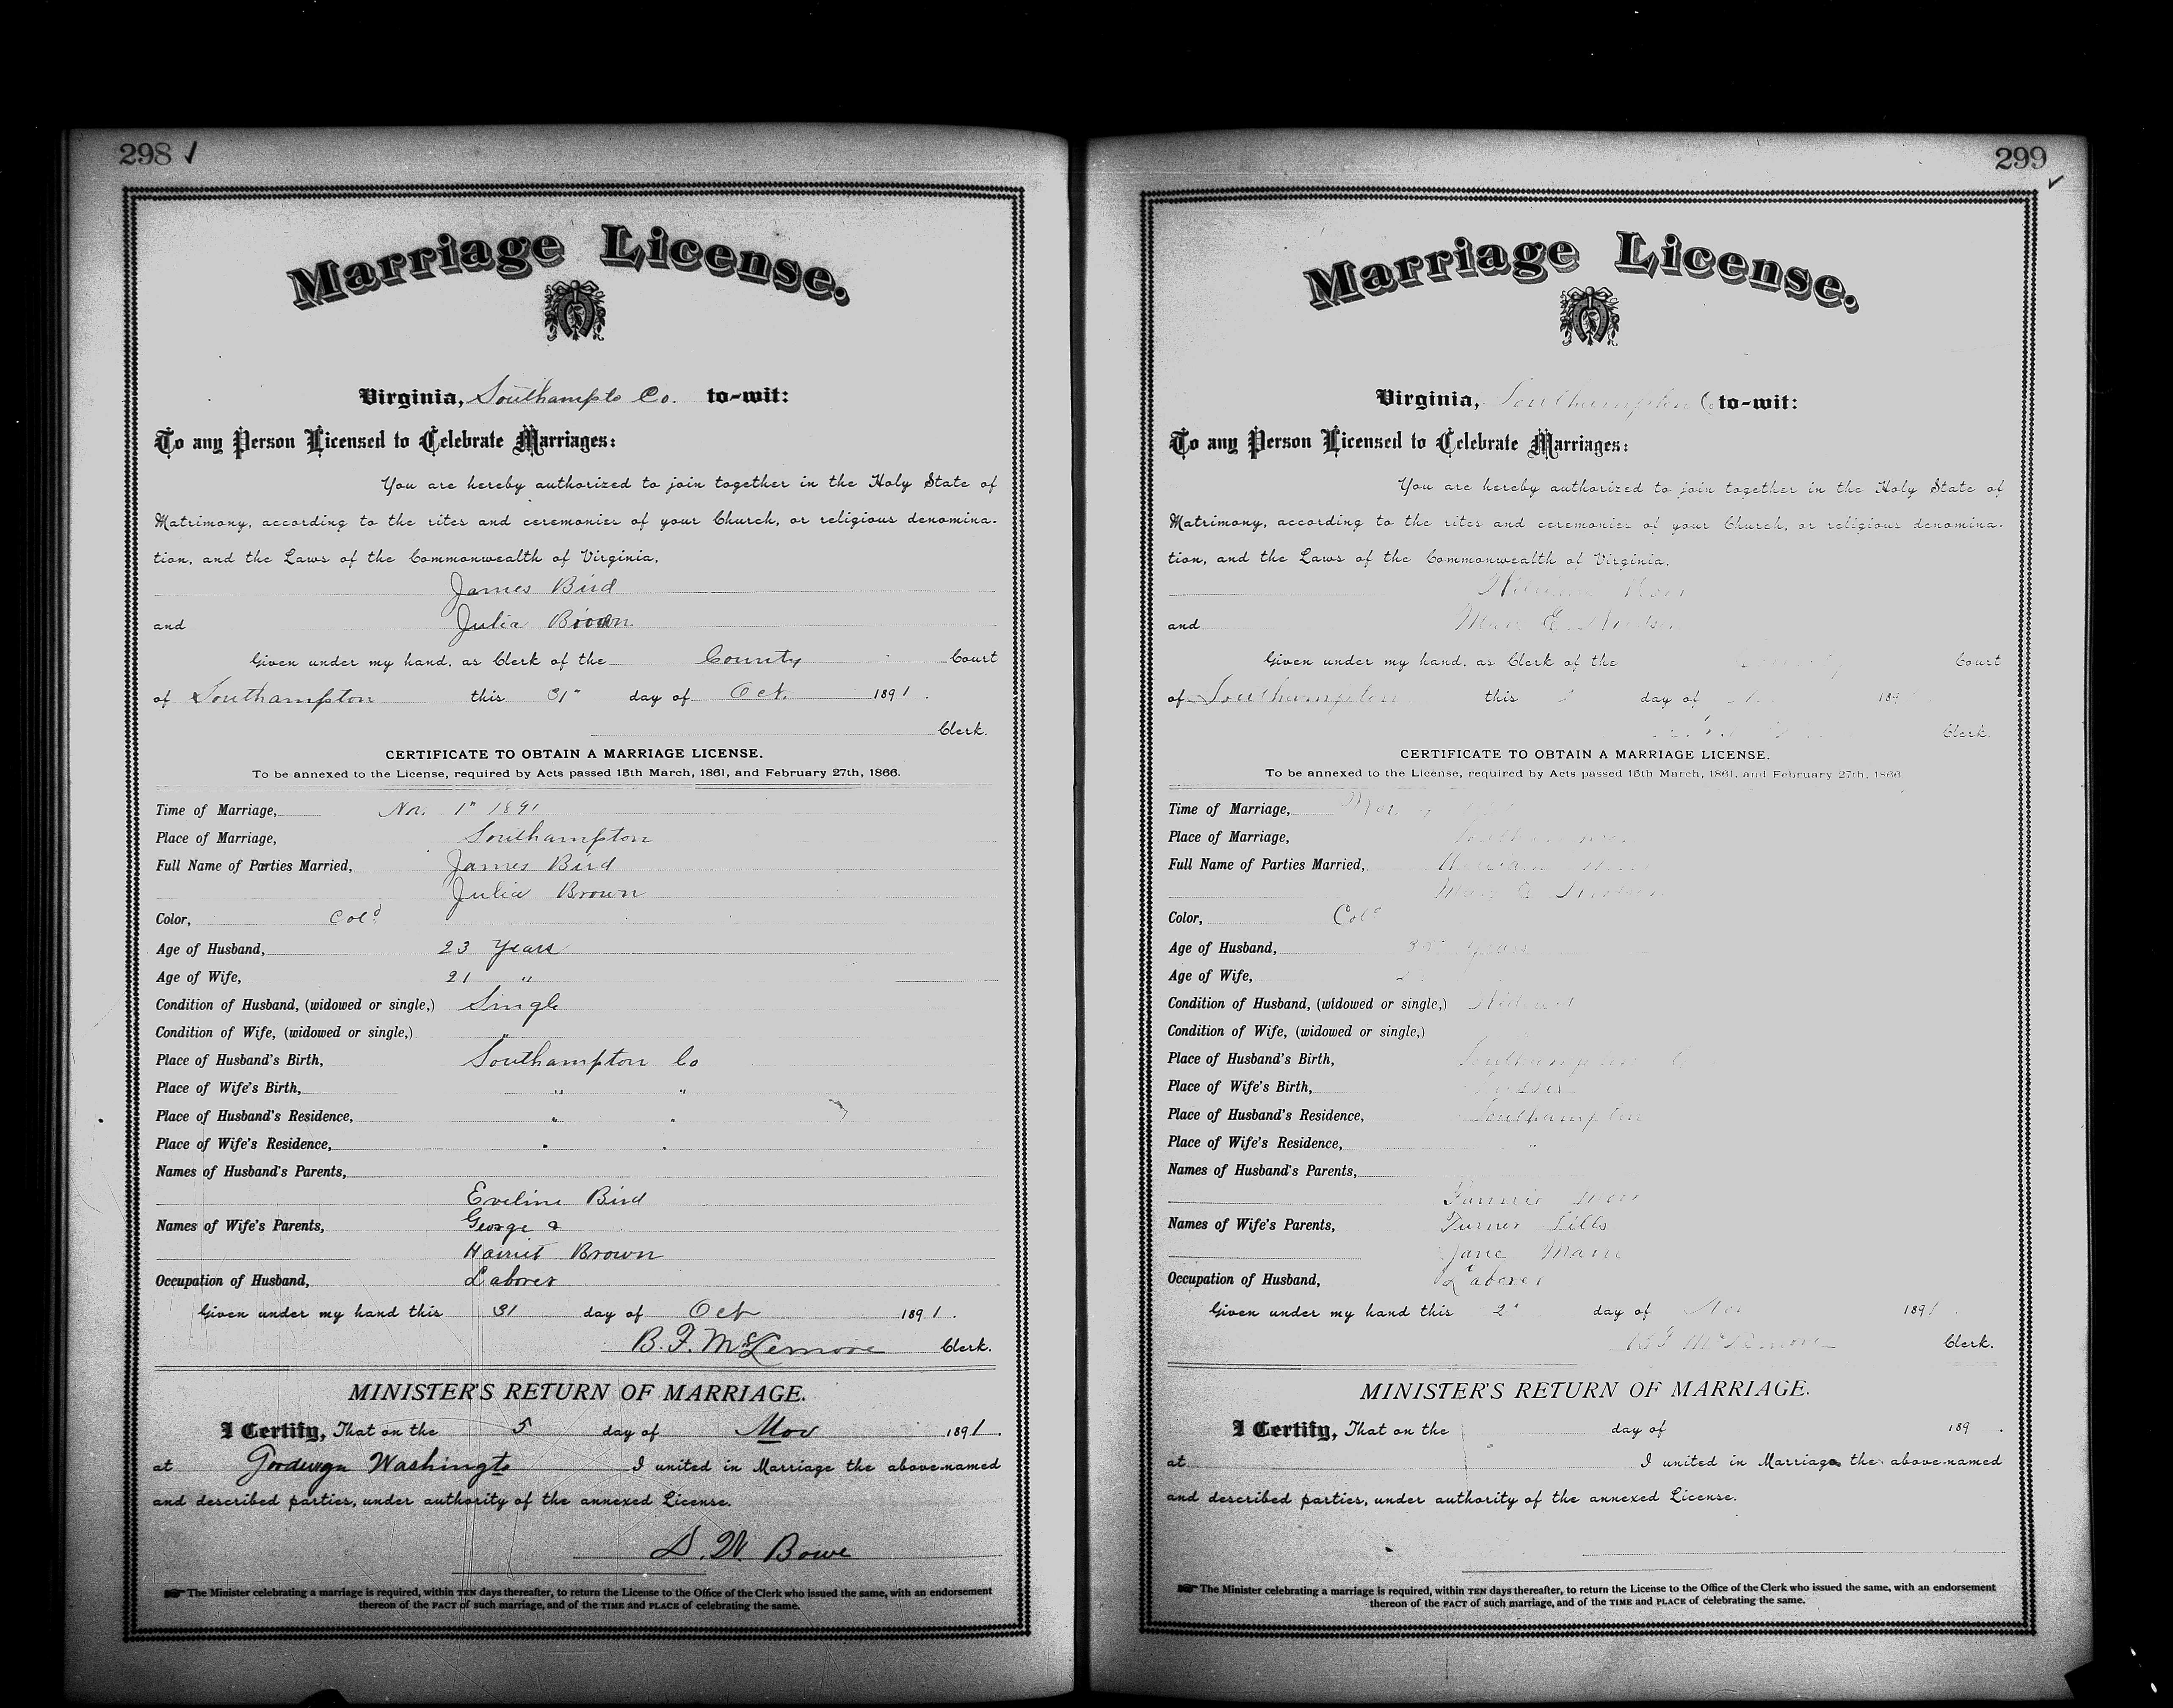 298 ✓
Marriage License.
Virginia, Southampto Co. to-wit:
To any Person Licensed to Celebrate Marriages:
You are hereby authorized to join together in the Holy State of
Matrimony, according to the rites and ceremonies of your Church, or religious denomina-
tion, and the Laws of the Commonwealth of Virginia,
James Bird
and Julia Brown
Given under my hand, as Clerk of the County Court
of Southampton this 31" day of Oct. 1891.
Clerk.
CERTIFICATE TO OBTAIN A MARRIAGE LICENSE.
To be annexed to the License, required by Acts passed 15th March, 1861, and February 27th, 1866.
Time of Marriage, Nov. 1" 1891
Place of Marriage, Southampton
Full Name of Parties Married, James Bird
Julia Brown
Color, Cold
Age of Husband, 23 Years
Age of Wife, 21 "
Condition of Husband, (widowed or single,) Single
Condition of Wife, (widowed or single,) "
Place of Husband's Birth, Southampton Co
Place of Wife's Birth, " "
Place of Husband's Residence, " "
Place of Wife's Residence, " "
Names of Husband's Parents,
Eveline Bird
Names of Wife's Parents, George &
Harriet Brown
Occupation of Husband, Laborer
Given under my hand this 31 day of Oct 1891.
B. F. McLemore Clerk.
MINISTER'S RETURN OF MARRIAGE.
I Certify, That on the 5 day of Nov 1891.
at Washingto I united in Marriage the above-named
and described parties, under authority of the annexed License.
D. W. Bowe
The Minister celebrating a marriage is required, within TEN days thereafter, to return the License to the Office of the Clerk who issued the same, with an endorsement
thereon of the FACT of such marriage, and of the TIME and PLACE of celebrating the same.
299 ✓
Marriage License.
Virginia, Southampton Co to-wit:
To any Person Licensed to Celebrate Marriages:
You are hereby authorized to join together in the Holy State of
Matrimony, according to the rites and ceremonies of your Church, or religious denomina-
tion, and the Laws of the Commonwealth of Virginia,
and E.
Given under my hand, as Clerk of the County Court
of Southampton this day of 189
Clerk.
CERTIFICATE TO OBTAIN A MARRIAGE LICENSE.
To be annexed to the License, required by Acts passed 15th March, 1861, and February 27th, 1866
Time of Marriage, Nov.
Place of Marriage,
Full Name of Parties Married,
Mary E.
Color, Cold
Age of Husband, Years
Age of Wife,
Condition of Husband, (widowed or single,) Widowed
Condition of Wife, (widowed or single,)
Place of Husband's Birth, Southampton Co
Place of Wife's Birth, Sussex
Place of Husband's Residence, Southampton
Place of Wife's Residence, "
Names of Husband's Parents,
Names of Wife's Parents, Turner
Jane
Occupation of Husband, Laborer
Given under my hand this 2" day of Nov 1891.
B F McLemore Clerk.
MINISTER'S RETURN OF MARRIAGE.
I Certify, That on the day of 189 .
at I united in Marriage the above-named
and described parties, under authority of the annexed License.
The Minister celebrating a marriage is required, within TEN days thereafter, to return the License to the Office of the Clerk who issued the same, with an endorsement
thereon of the FACT of such marriage, and of the TIME and PLACE of celebrating the same.